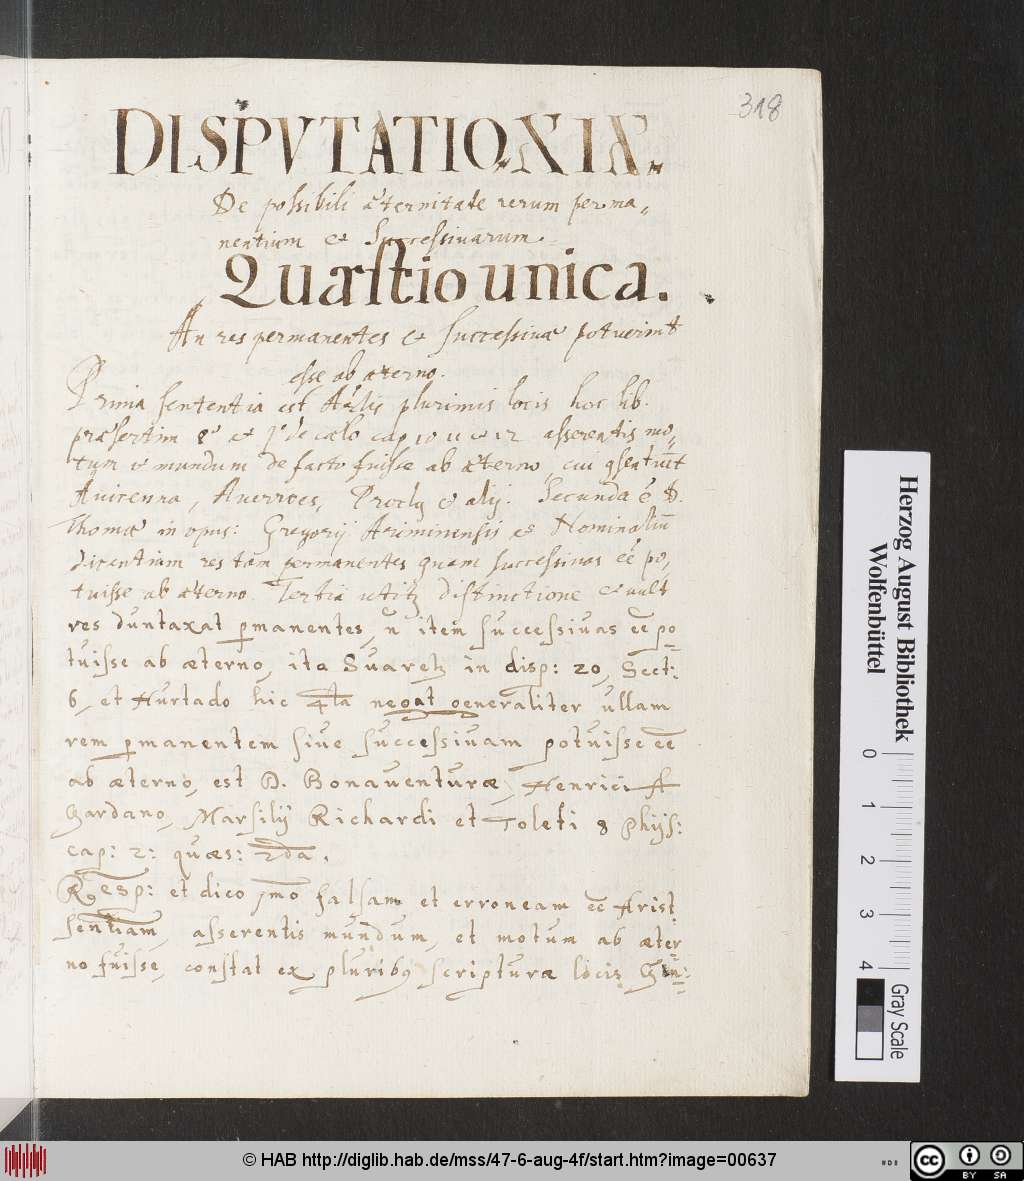 318
DISPVTATIO XIX.
De possibili æternitate rerum perma„
nentium et Successiuarum.
Quæstio unica.
An res permanentes et Successiuæ potuerint
esse ab æterno.
Prima sententia est plurimis locis hoc lib.
præsertim 8º et de cælo cap 10 11 et 12 asserentis mo„
tum et mundum de facto fuisse ab æterno, cui
Auicenna, Auerroes, Procly et alij. Secunda ē D.
Thomæ in opus: Gregorij Ariminensis et Nominaliū
dicentium res tam permanentes quam successiuas eē po„
tuisse ab æterno. Tertia distinctione et uult
res duntaxat pmanentes, n̄ item successiuas eē po„
tuisse ab æterno, ita Suaretz in disp: 20, Sect:
6, et Hurtado hic 4ta negat generaliter ullam
rem pmanentem siue successiuam potuisse eē
ab æterno, est D. Bonauenturæ, Henrici A
Gardano, Marsilij Richardi et Toleti 8 Phijs:
cap: 2: quæs: 2da.
Resp: et dico jmo falsam et erroneam eē Arist
sentiam, asserentis mundum, et motum ab æter
no fuisse, constat ex pluribq scripturæ locis Gen:
Herzog August Bibliothek
Wolfenbüttel
0 1 2 3 4
Gray Scale
© HAB http://diglib.hab.de/mss/47-6-aug-4f/start.htm?image=00637
cc BY SA